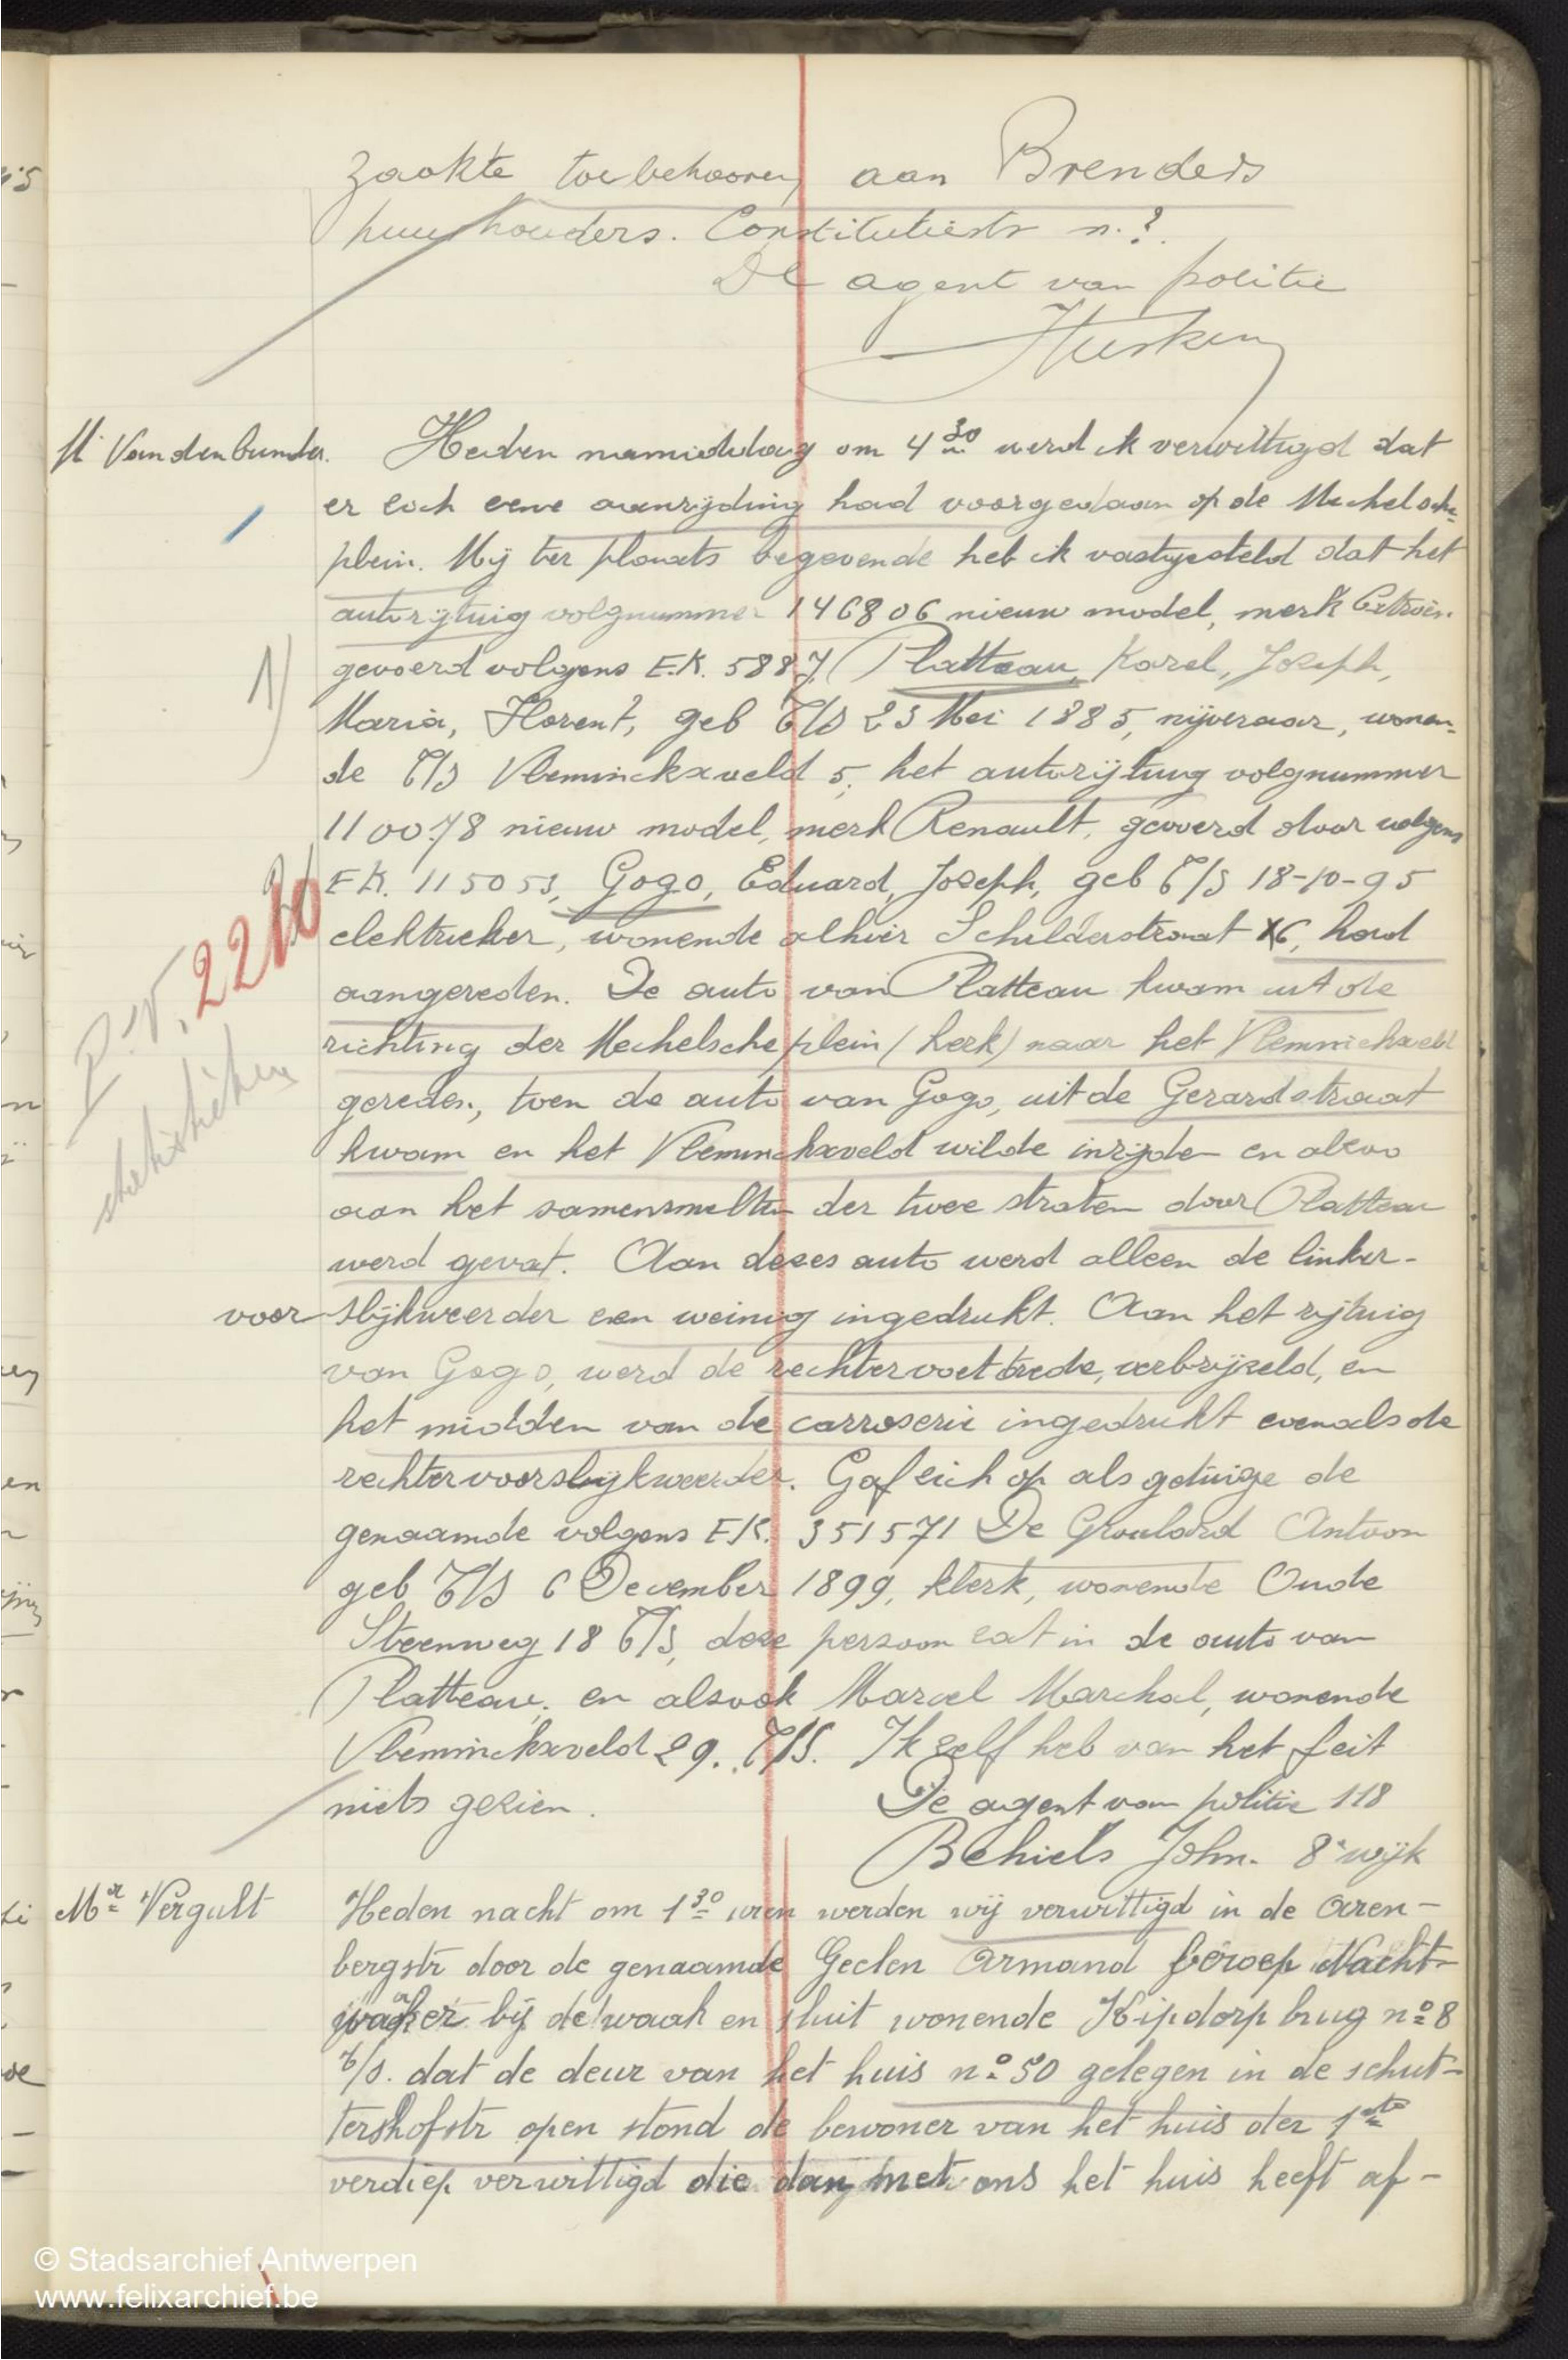 zaokte toebehooren aan Brenders
huurhouders. Constitutiestr n.?
De agent van politie
M Vandenbunder.
Heden namiddag om 4 30 werd ik verwittigd dat
er zich eene aanrijding had voorgedaan op de Mechelsche
plein. Mij ter plaats begevende heb ik vastgesteld dat het
autorijtuig volgnummer 146806 nieuw model, merk Citroën.
1)
gevoerd volgens E.K. 5887 Platteau, Karel, Joseph,
Maria, Florent, geb T/S 23 Mei 1885, nijveraar, wonen-
de T/S Vleminckxveld 5, het autorijtuig volgnummer
110078 nieuw model, merk Renault, gevoerd door volgens
EK. 115053, Gogo, Eduard, Joseph, geb T/S 18-10-95
elektrieker, wonende alhier Schilderstraat 6, had
P.V. 2260
aangereden. De auto van Platteau kwam uit de
richting der Mechelsche plein (kerk) naar het Vleminckxveld
gereden, toen de auto van Gogo, uit de Gerardstraat
kwam en het Vleminckxveld wilde inrijden en alzoo
aan het samensmelten der twee straten door Platteau
werd gevat. Aan dezes auto werd alleen de linker-
voor slijkweerder een weinig ingedrukt. Aan het rijtuig
van Gogo, werd de rechtervoettrede, verbrijzeld, en
het midden van de carroserie ingedrukt evenals de
rechtervoorslijkweerder. Gaf zich op als getuige de
genaamde volgens EK. 351571 De Groulard Antoon
geb T/S 6 December 1899, klerk, wonende Oude
Steenweg 18 T/S, deze persoon zat in de auto van
Platteau, en alsook Marcel Marchal, wonende
Vleminckxveld 29. T/S. Ik zelf heb van het feit
niets gezien.
De agent van politie 118
Behiels John. 8e wijk
Mr Vergult
Heden nacht om 1 30 uren werden wij verwittigd in de Aren-
bergstr door de genaamde Geelen Armand beroep Nacht-
waker bij de waak en sluit wonende Kipdorp brug no 8
t/s. dat de deur van het huis no 50 gelegen in de schut-
tershofstr open stond de bewoner van het huis der 1ste
verdiep verwittigd die dan met ons het huis heeft af-
© Stadsarchief Antwerpen
www.felixarchief.be